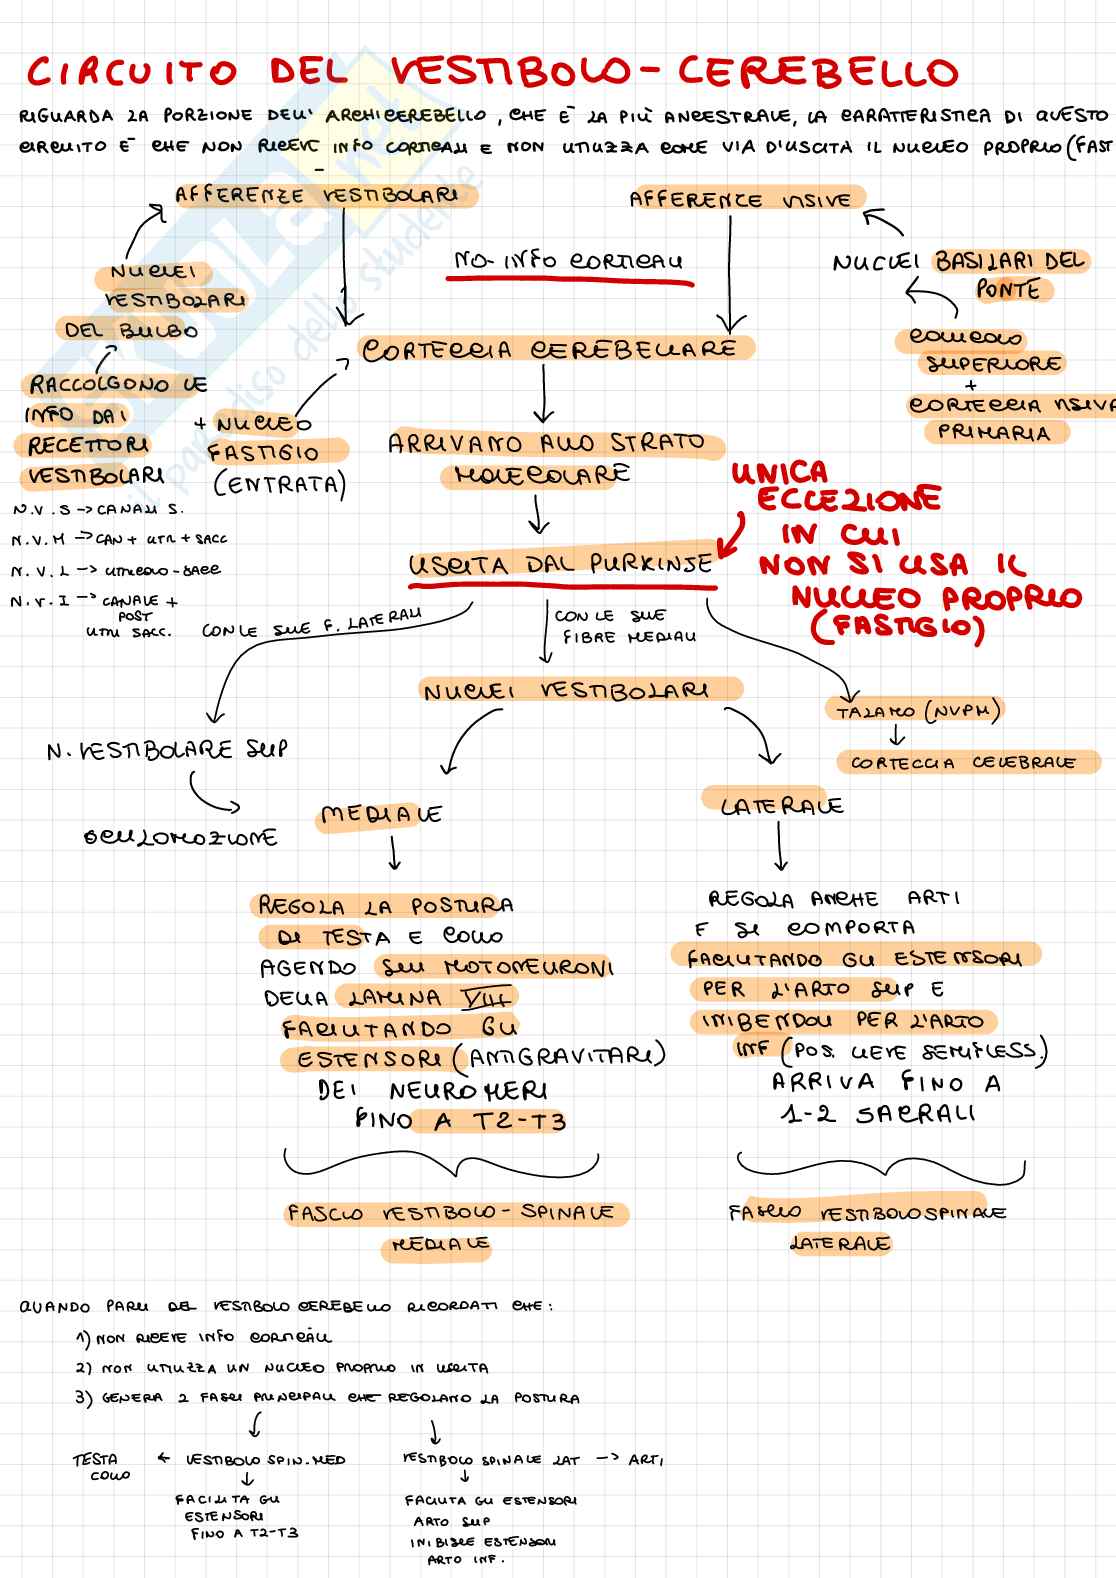 CIRCUITO DEL VESTIBOLO-CEREBELLO
RIGUARDA LA PORZIONE DELL'ARCHICEREBELLO, CHE È LA PIÙ ANCESTRALE, LA CARATTERISTICA DI QUESTO
CIRCUITO È CHE NON RICEVE INFO CORTICALI E NON UTILIZZA COME VIA D'USCITA IL NUCLEO PROPRIO (FAST
AFFERENZE VESTIBOLARI
AFFERENZE VISIVE
NO-INFO CORTICALI
NUCLEI
VESTIBOLARI
DEL BULBO
NUCLEI BASILARI DEL
PONTE
COLLICOLO
SUPERIORE
+
CORTECCIA VISIVA
PRIMARIA
CORTECCIA CEREBELLARE
RACCOLGONO LE
INFO DAI
RECETTORI
VESTIBOLARI
+ NUCLEO
FASTIGIO
(ENTRATA)
ARRIVANO ALLO STRATO
MOLECOLARE
N.V.S -> CANALI S.
N.V.M -> CAN + UTR + SACC
N.V.L -> UTRICOLO-SACC
N.V.I -> CANALE +
POST
UTRI SACC.
USCITA DAL PURKINJE
UNICA
ECCEZIONE
IN CUI
NON SI USA IL
NUCLEO PROPRIO
(FASTIGIO)
CON LE SUE F. LATERALI
CON LE SUE
FIBRE MEDIALI
NUCLEI VESTIBOLARI
TALAMO (NVPM)
CORTECCIA CELEBRALE
N. VESTIBOLARE SUP
OCULOMOZIONE
MEDIALE
LATERALE
REGOLA LA POSTURA
DI TESTA E COLLO
AGENDO SUI MOTONEURONI
DELLA LAMINA VIII
FACILITANDO GLI
ESTENSORI (ANTIGRAVITARI)
DEI NEUROMERI
FINO A T2-T3
REGOLA ANCHE ARTI
E SI COMPORTA
FACILITANDO GLI ESTENSORI
PER L'ARTO SUP E
INIBENDOLI PER L'ARTO
INF (POS. LIEVE SEMIFLESS.)
ARRIVA FINO A
1-2 SACRALI
FASCIO VESTIBOLO-SPINALE
MEDIALE
FASCIO VESTIBOLOSPINALE
LATERALE
QUANDO PARLI DEL VESTIBOLO CEREBELLO RICORDATI CHE:
1) NON RICEVE INFO CORTICALI
2) NON UTILIZZA UN NUCLEO PROPRIO IN USCITA
3) GENERA 2 FASCI PRINCIPALI CHE REGOLANO LA POSTURA
TESTA
COLLO
<- VESTIBOLO SPIN.MED
VESTIBOLO SPINALE LAT -> ARTI
FACILITA GLI
ESTENSORI
FINO A T2-T3
FACILITA GLI ESTENSORI
ARTO SUP
INIBISCE ESTENSORI
ARTO INF.
SKUOLA.net
il paradiso dello studente